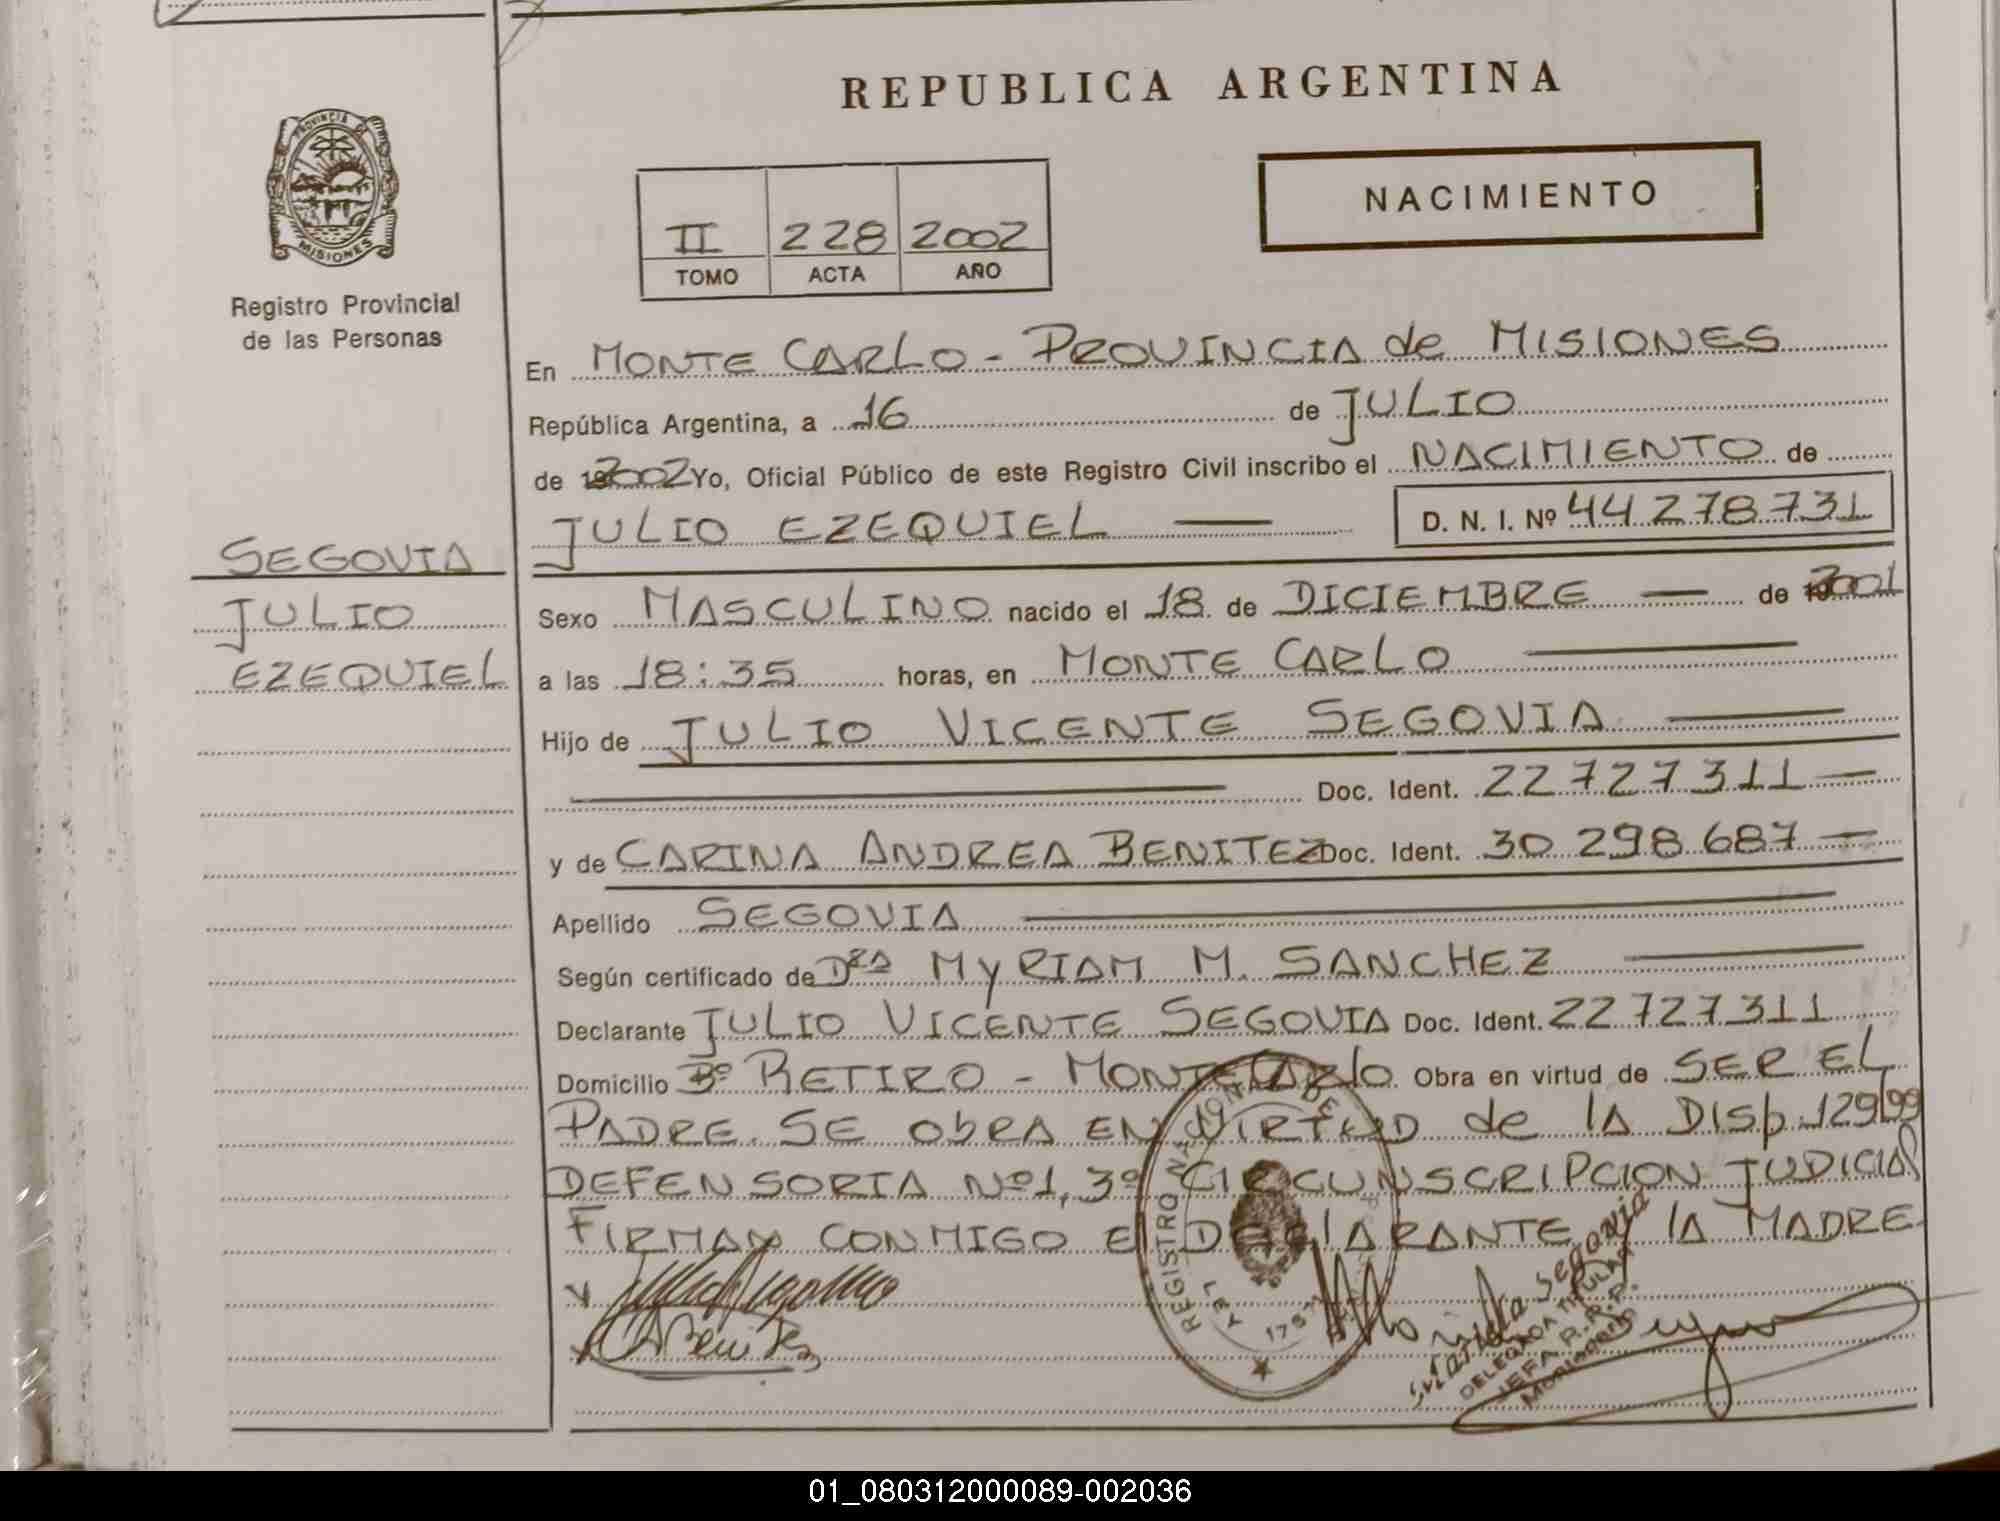 REPUBLICA ARGENTINA
PROVINCIA DE
MISIONES
Registro Provincial
de las Personas
NACIMIENTO
II 228 2002
TOMO ACTA AÑO
En MONTE CARLO - PROVINCIA de MISIONES
República Argentina, a 16 de JULIO
de 2002 Yo, Oficial Público de este Registro Civil inscribo el NACIMIENTO de
JULIO EZEQUIEL D. N. I. Nº 44 278 731
SEGOVIA
JULIO
EZEQUIEL
Sexo MASCULINO nacido el 18 de DICIEMBRE de 2001
a las 18:35 horas, en MONTE CARLO
Hijo de JULIO VICENTE SEGOVIA
Doc. Ident. 22 727 311
y de CARINA ANDREA BENITEZ Doc. Ident. 30 298 687
Apellido SEGOVIA
Según certificado de Dra MYRIAM M. SANCHEZ
Declarante JULIO VICENTE SEGOVIA Doc. Ident. 22 727 311
Domicilio Bº RETIRO - MONTECARLO Obra en virtud de SER EL
PADRE. SE ObRA EN VIRTUD de lA DISp. 129/99
DEFENSORIA Nº1, 3º CIRCUNSCRIPCION JUDICIAl
FIRMAN CONMIGO El DEClARANTE lA MADRE
REGISTRO NACIONAL DE
LEY 17671
Segovia
DELEGADA TITULAR
JEFA R.R.P.
01_080312000089-002036